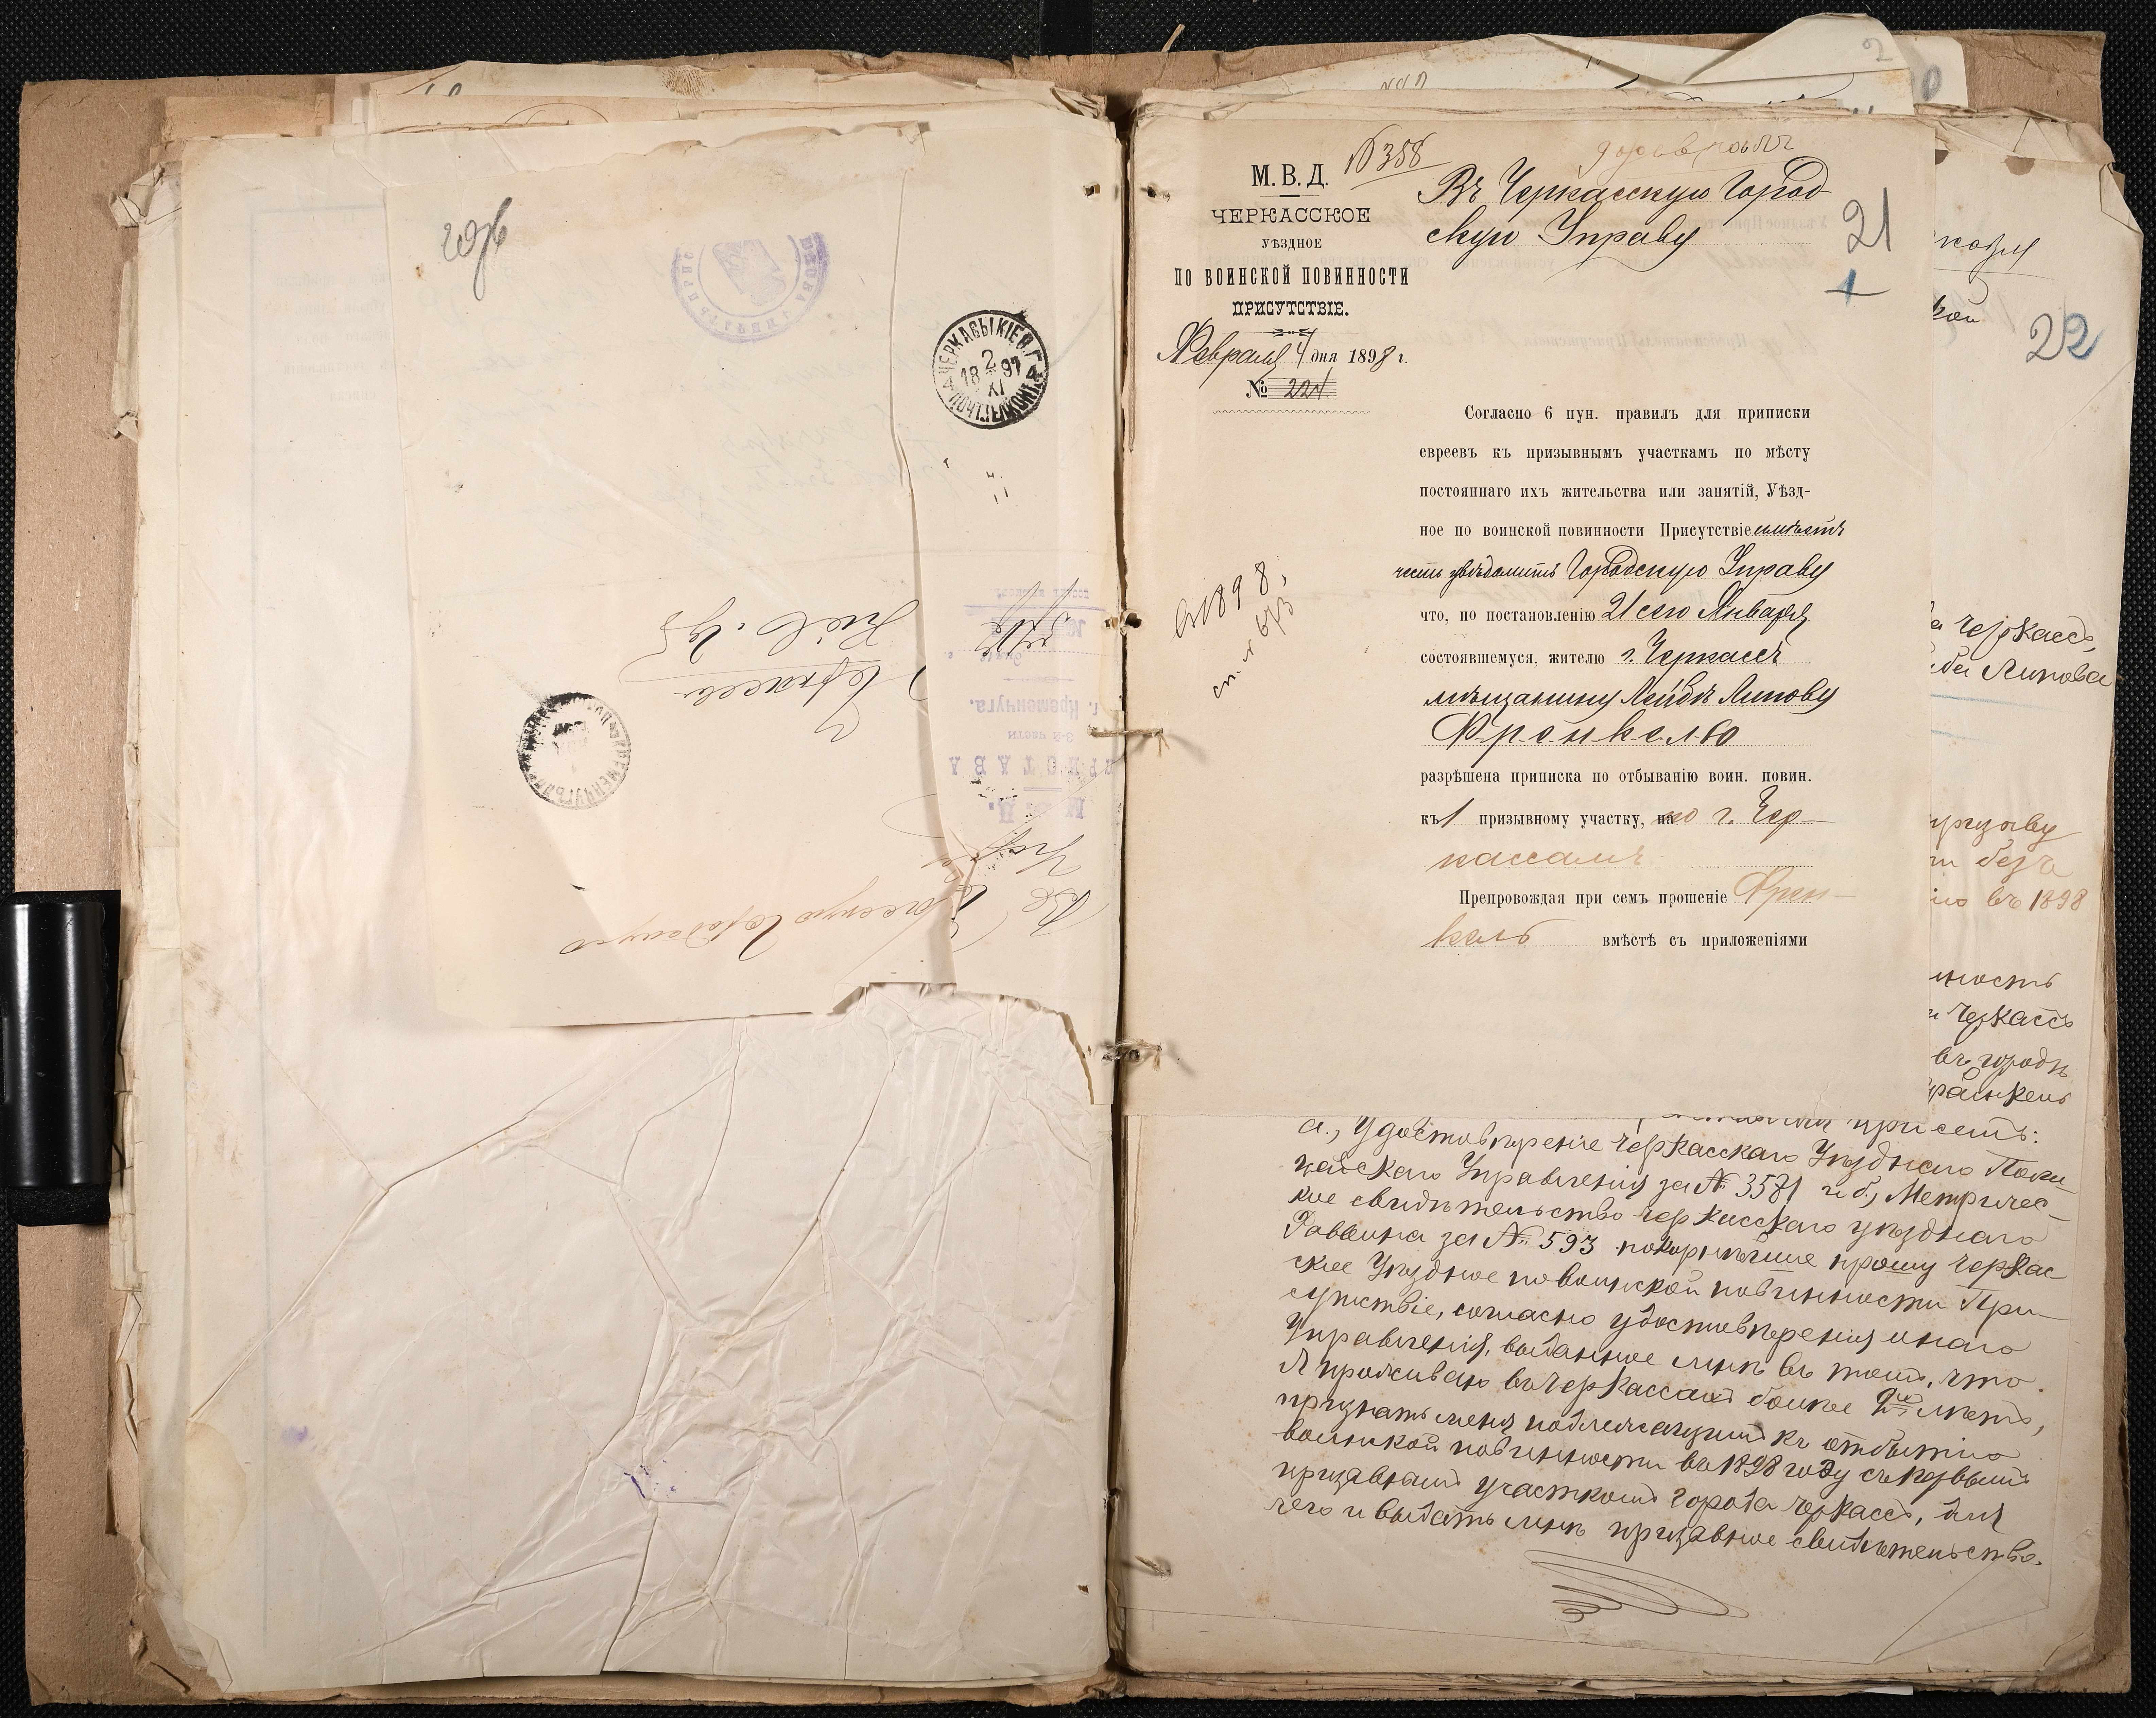 ЧЕРКАСЫ КІЕВ. Г.
2
XI
18 97
Въ Черкасскую Городскую
Упр.
М. В. Д.
ПРИСТАВА
3-й части
г. Кременчуга.
Черкассы
Кіев. губ.
№ 358
М. В. Д.
ЧЕРКАССКОЕ
УѢЗДНОЕ
ПО ВОИНСКОЙ ПОВИННОСТИ
ПРИСУТСТВІЕ.
Февраля 4 дня 1898 г.
№ 224
Въ Черкасскую Город
скую Управу
21
1
Согласно 6 пун. правилъ для приписки
евреевъ къ призывнымъ участкамъ по мѣсту
постояннаго ихъ жительства или занятій, Уѣзд-
ное по воинской повинности Присутствіе имѣетъ
честь увѣдомить Городскую Управу
что, по постановленію 21 сего Января
состоявшемуся, жителю г. Черкассъ
мѣщанину Лейбѣ Липову
Френкелю
разрѣшена приписка по отбыванію воин. повин.
къ 1 призывному участку, на по г. Чер-
кассамъ
Препровождая при семъ прошеніе Френ-
кель вмѣстѣ съ приложеніями
1898
сп.
22
Черкассъ,
Липова
призыву
безъ
въ 1898
ность
Черкассъ
въ городѣ
Френкель
при семъ:
а., Удостовѣреніе Черкасскаго Уѣзднаго Поли-
цейскаго Управленія за № 3581 и б., Метричес-
кое свидѣтельство Черкасскаго уѣзднаго
Раввина за № 593 покорнѣйше прошу Черкас
ское Уѣздное по воинской повинности При-
сутствіе, согласно удостовѣренія онаго
Управленія, выданное мнѣ въ томъ, что
я проживаю въ Черкассахъ болѣе 2хъ лѣтъ,
признать меня подлежащимъ къ отбытію
воинской повинности въ 1898 году съ первымъ
призывнымъ участкомъ города Черкассъ, для
чего и выдать мнѣ призывное свидѣтельство.